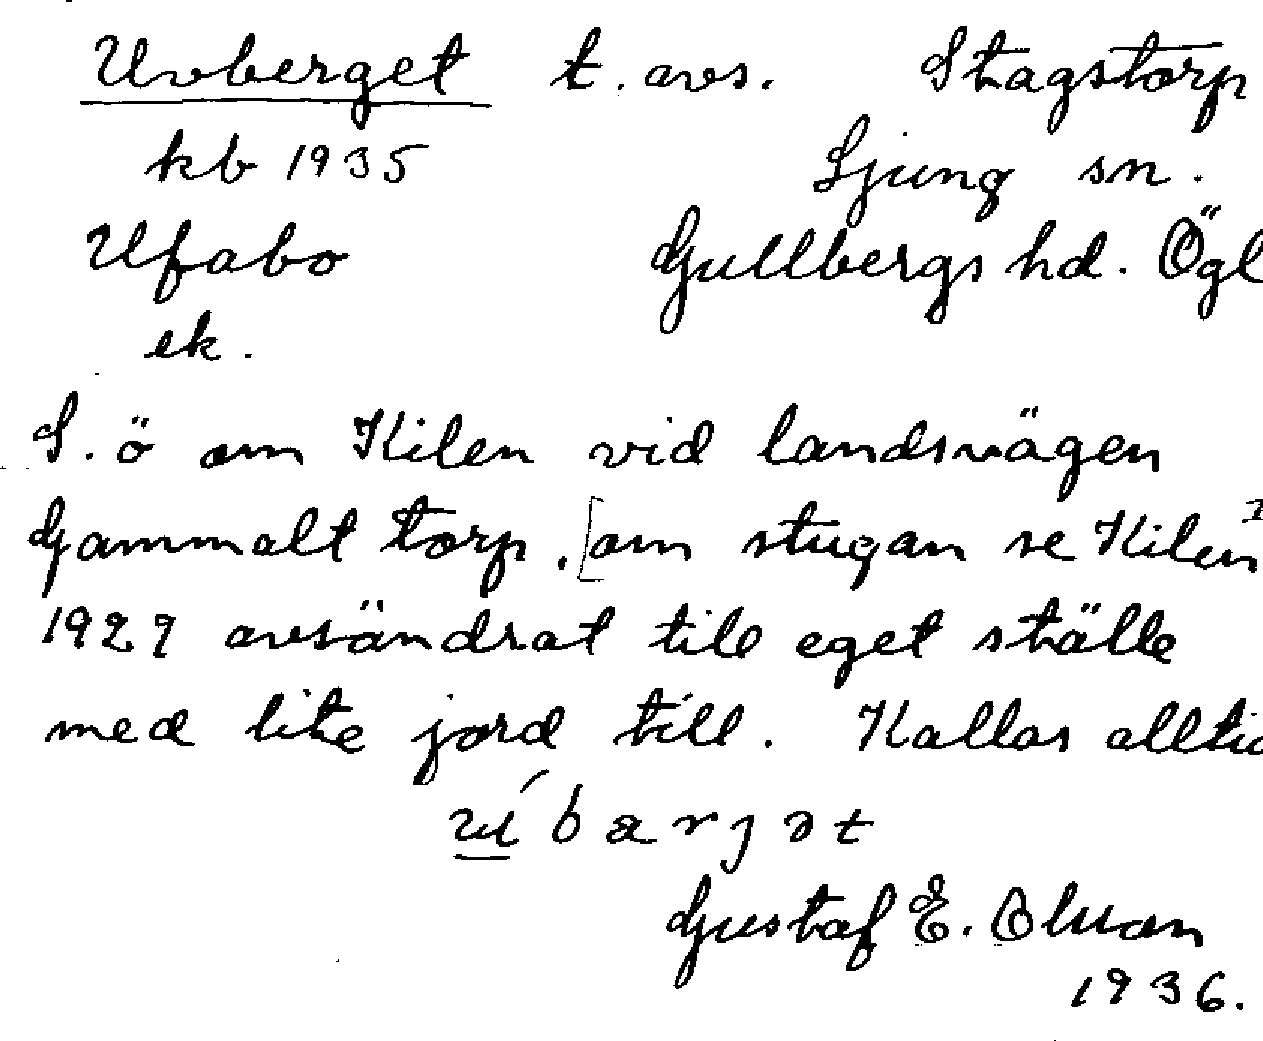 Uvberget t. avs. Stagstorp
kb 1935 Ljung sn.
Ufabo Gullbergs hd. Ögl
ek.
S. ö om Kilen vid landsvägen
Gammalt torp. [om stugan se Kilen
1929 avsöndrat till eget ställe
med lite jord till. Kallas alltid
Gustaf E. Olsson
1936.